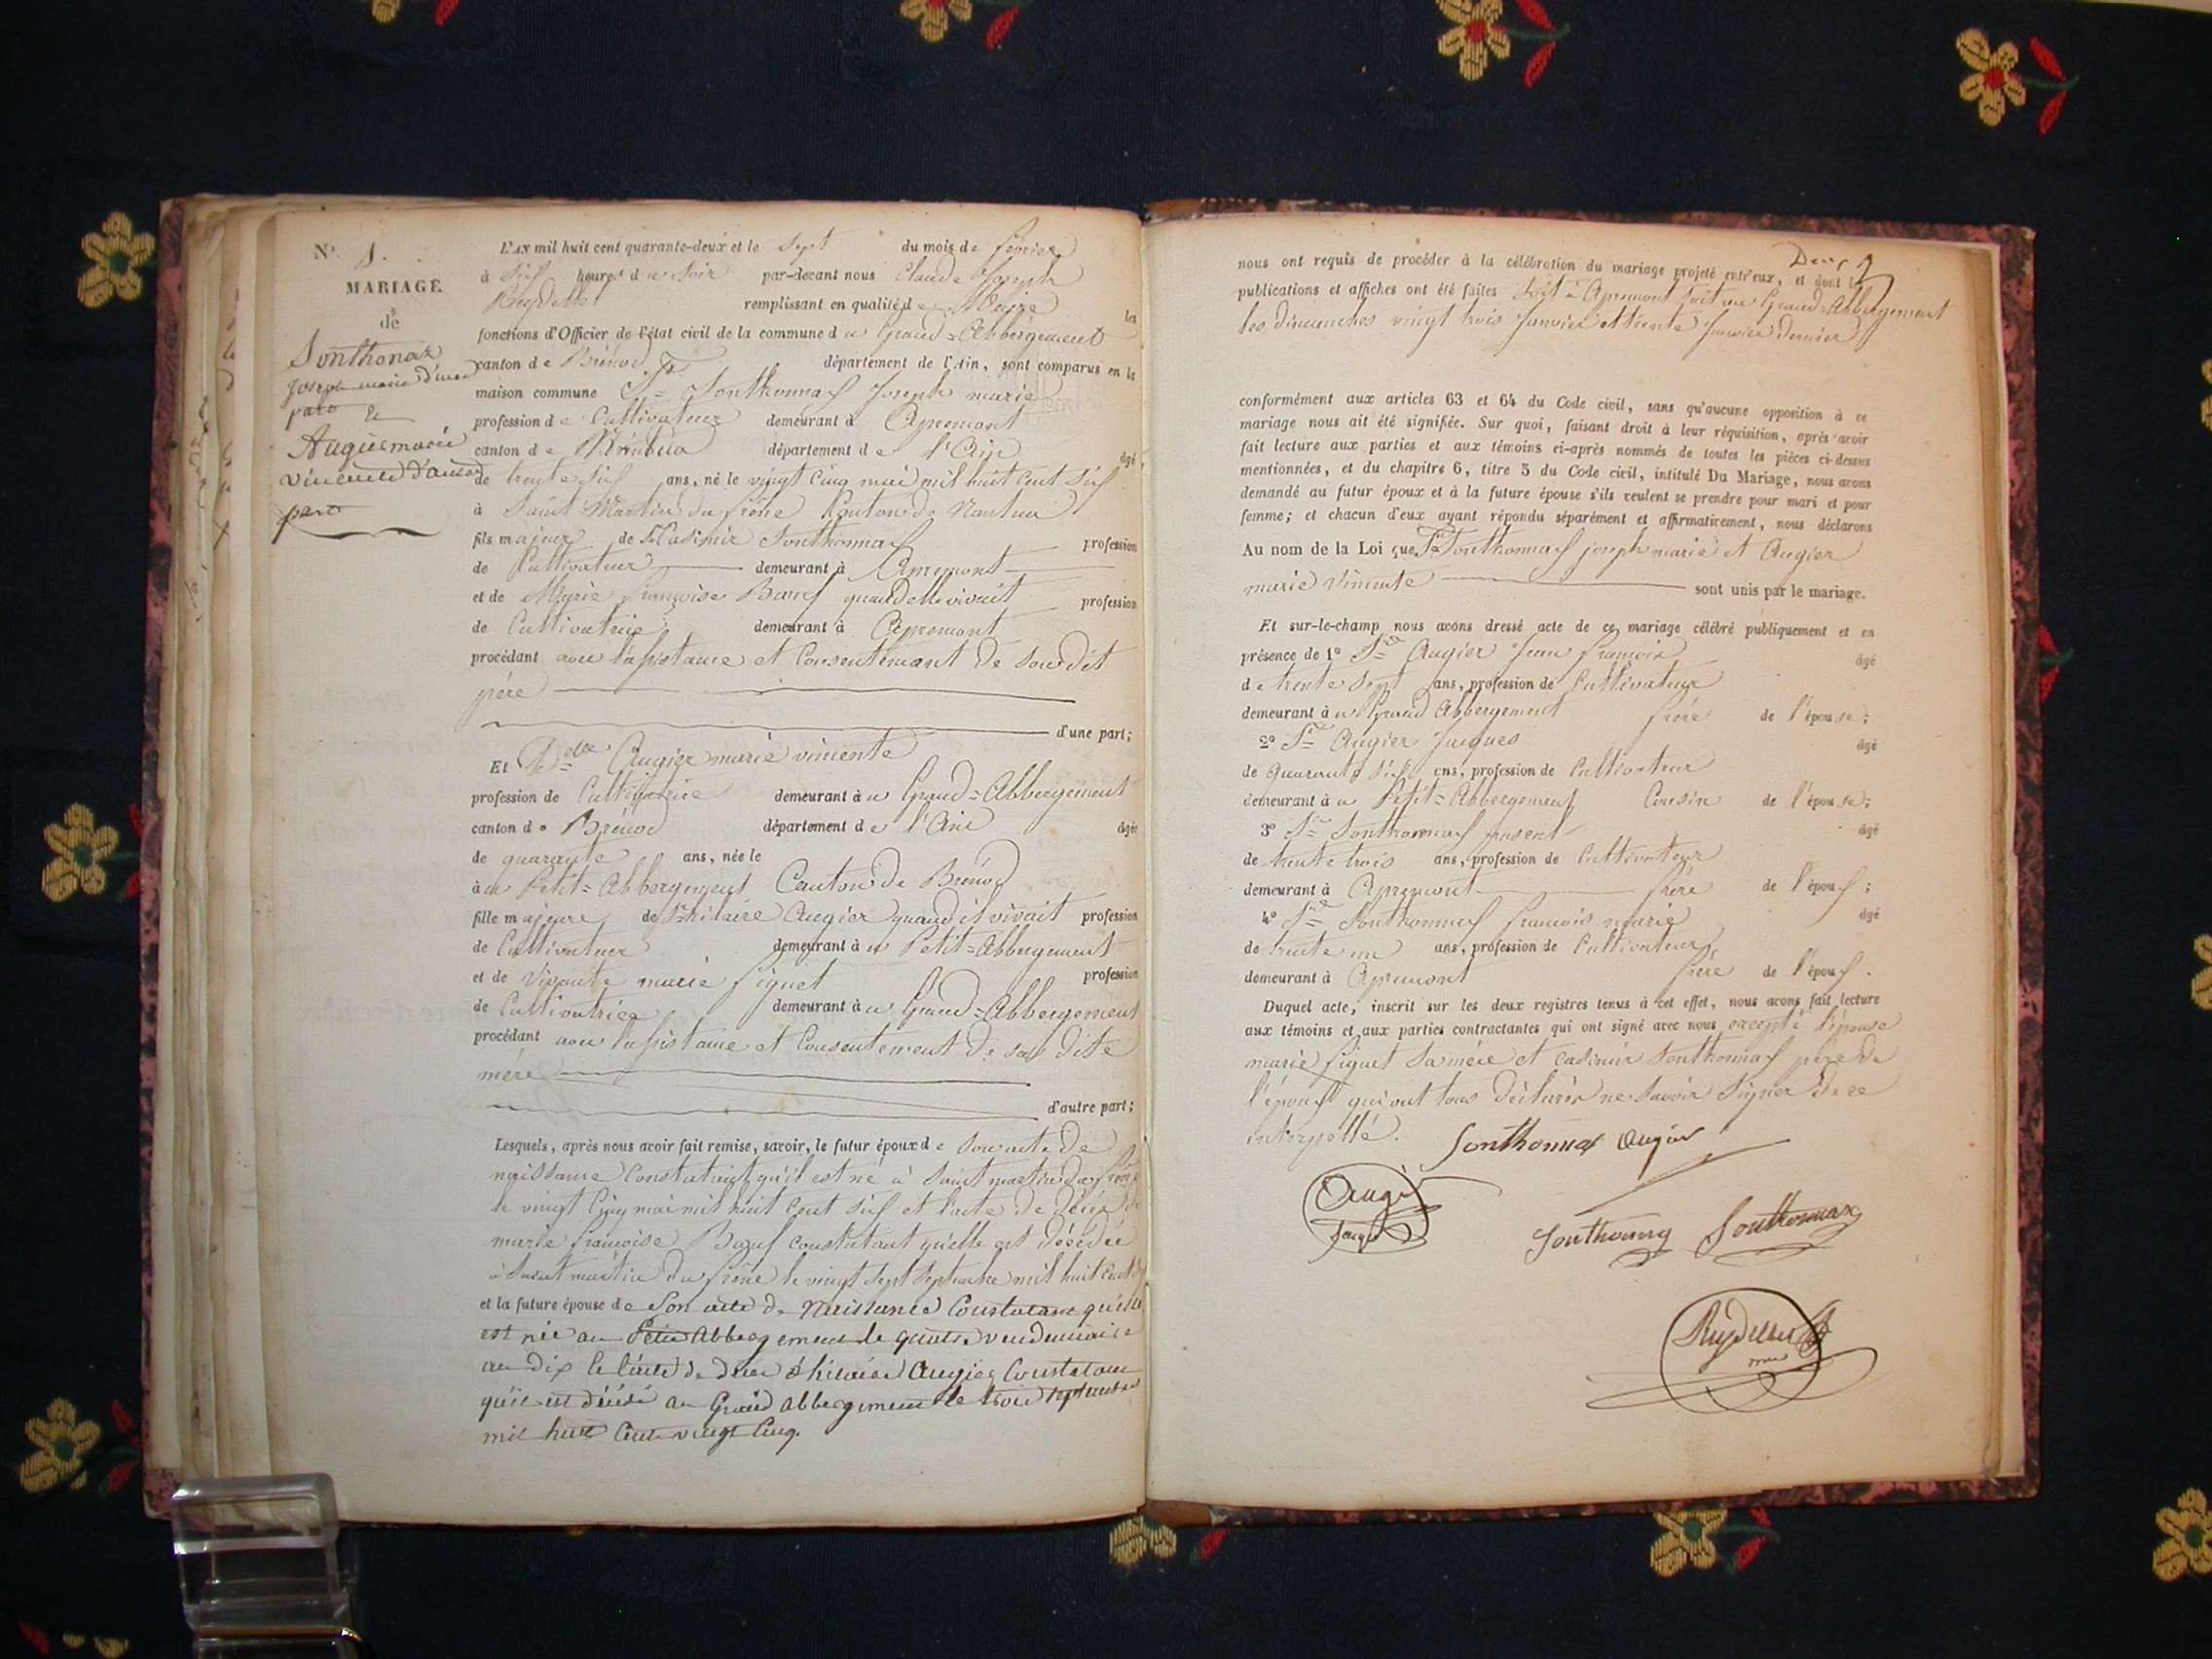 N° 1.
MARIAGE
de
Sonthonax
Joseph marie d'une
part et
Augier marie
vincente d'autre
part
L'AN mil huit cent quarante-deux et le sept du mois de février
à six heures du soir par-devant nous Claude Joseph
Ruydellet remplissant en qualité de Maire les
fonctions d'Officier de l'état civil de la commune du Grand=Abbergement
canton de Brénod département de l'Ain, sont comparus en la
maison commune Sr Sonthonnax Joseph marie
profession de Cultivateur demeurant à Apremont
canton de Nantua département de l'Ain âgé
de trente six ans, né le vingt cinq mai mil huit cent six
à Saint Martin du frêne Canton de Nantua
fils majeur de Sr Casimir Sonthonnax profession
de Cultivateur demeurant à Apremont
et de Marie françoise Bœuf quand elle vivait profession
de Cultivatrice demeurant à Apremont
procédant avec l'assistance et Consentement de son dit
père
d'une part;
Et Delle Augier marie vincente
profession de Cultivatrice demeurant au Grand=Abbergement
canton de Brénod département de l'Ain âgée
de quarante ans, née le
à au Petit=Abbergement Canton de Brénod
fille majeure de St hilaire Augier quand il vivait profession
de Cultivateur demeurant à u Petit=Abbergement
et de Vincente marie figuet profession
de Cultivatrice demeurant à u Grand=Abbergement
procédant avec l'assistance et Consentement de sa dite
mère
d'autre part;
Lesquels, après nous avoir fait remise, savoir, le futur époux de son acte de
naissance Constatant qu'il est né à Saint martin du frêne
le vingt Cinq mai mil huit Cent six et l'acte de décès de
marie françoise Bœuf constatant qu'elle est décédée
à Saint martin du frêne le vingt sept septembre mil huit cent
et la future épouse de son acte de naissance Constatant qu'elle
est née au Petit Abbergement le quatre vendemiaire
an dix et l'acte de décès d'hilaire Augier Constatant
qu'il est décédé au Grand abbergement le trois septembre
mil huit Cent vingt Cinq.
Deux
nous ont requis de procéder à la célébration du mariage projeté entr'eux, et dont les
publications et affiches ont été faites soit à Apremont soit au Grand=Abbergement
les dimanches vingt trois Janvier et trente Janvier dernier
conformément aux articles 63 et 64 du Code civil, sans qu'aucune opposition à ce
mariage nous ait été signifiée. Sur quoi, faisant droit à leur réquisition, après avoir
fait lecture aux parties et aux témoins ci-après nommés de toutes les pièces ci-dessus
mentionnées, et du chapitre 6, titre 5 du Code civil, intitulé Du Mariage, nous avons
demandé au futur époux et à la future épouse s'ils veulent se prendre pour mari et pour
femme; et chacun d'eux ayant répondu séparément et affirmativement, nous déclarons
Au nom de la Loi que Sr Sonthonnax joseph marie et Augier
marie Vincente sont unis par le mariage.
Et sur-le-champ nous avons dressé acte de ce mariage célébré publiquement et en
présence de 1° Sr Augier Jean françois âgé
de trente sept ans, profession de Cultivateur
demeurant à u Grand Abbergement frère de l'épouse;
2° Sr Augier Jacques âgé
de quarante six ans, profession de Cultivateur
demeurant à u Petit=Abbergement Cousin de l'épouse;
3° Sr Sonthonnax âgé
de trente trois ans, profession de Cultivateur
demeurant à Apremont frère de l'époux;
4° Sr Sonthonnax françois marie âgé
de trente un ans, profession de Cultivateur
demeurant à Apremont frère de l'époux.
Duquel acte, inscrit sur les deux registres tenus à cet effet, nous avons fait lecture
aux témoins et aux parties contractantes qui ont signé avec nous excepté l'épouse
marie figuet sa mère et casimir Sonthonnax père de
l'époux qui ont tous déclarés ne savoir signer de ce
interpellé.
Sonthonnax Augier
Augier
Jacques
Sonthonax Sonthonnax
Ruydellet
maire